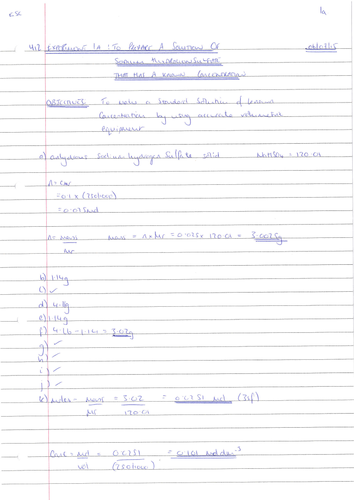 1a
4.12 EXPERIMENT 1A : TO PREPARE A SOLUTION OF
SODIUM HYDROGENSULFATE
THAT HAS A KNOWN CONCENTRATION
OBJECTIVES To make a standard solution of known
concentration by using accurate volumetric
equipment
a) anhydrous sodium hydrogen sulfate solid NaHSO4 = 120.01
n = cv
= 0.1 x (250/1000)
= 0.025mol
n = mass mass = n x Mr = 0.025 x 120.01 = 3.0025g
Mr
b) 1.14g
c) ✓
d)
e) 1.14g
f) 4.16 - 1.14 = 3.02g
g) ✓
h) ✓
i) ✓
j) ✓
k) moles = mass = 3.02 = 0.0251 mol (3sf)
Mr 120.01
Conc = mol = 0.0251 = 0.101 moldm-3
vol (250/1000)